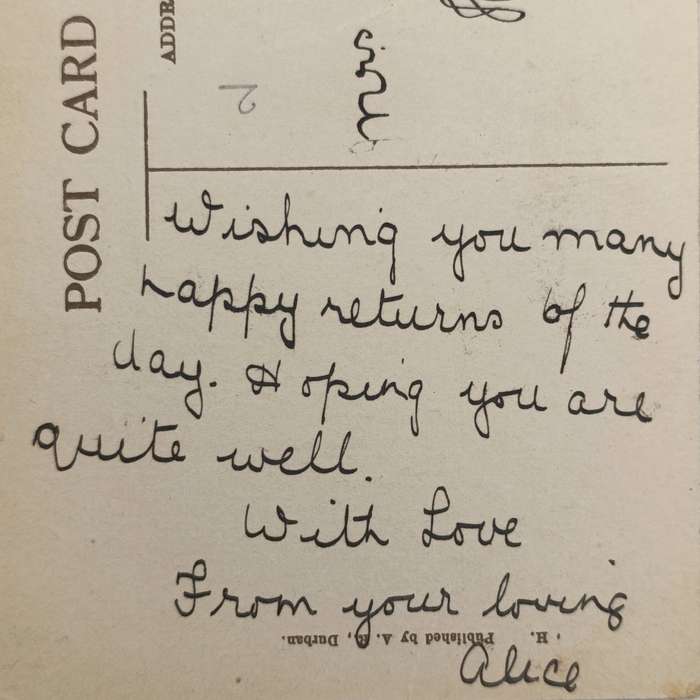 POST CARD
ADDR
2
Wishing you many
happy returns of the
day. Hoping you are
quite well.
With Love
From your loving
Alice
H. Published by A. R., Durban.